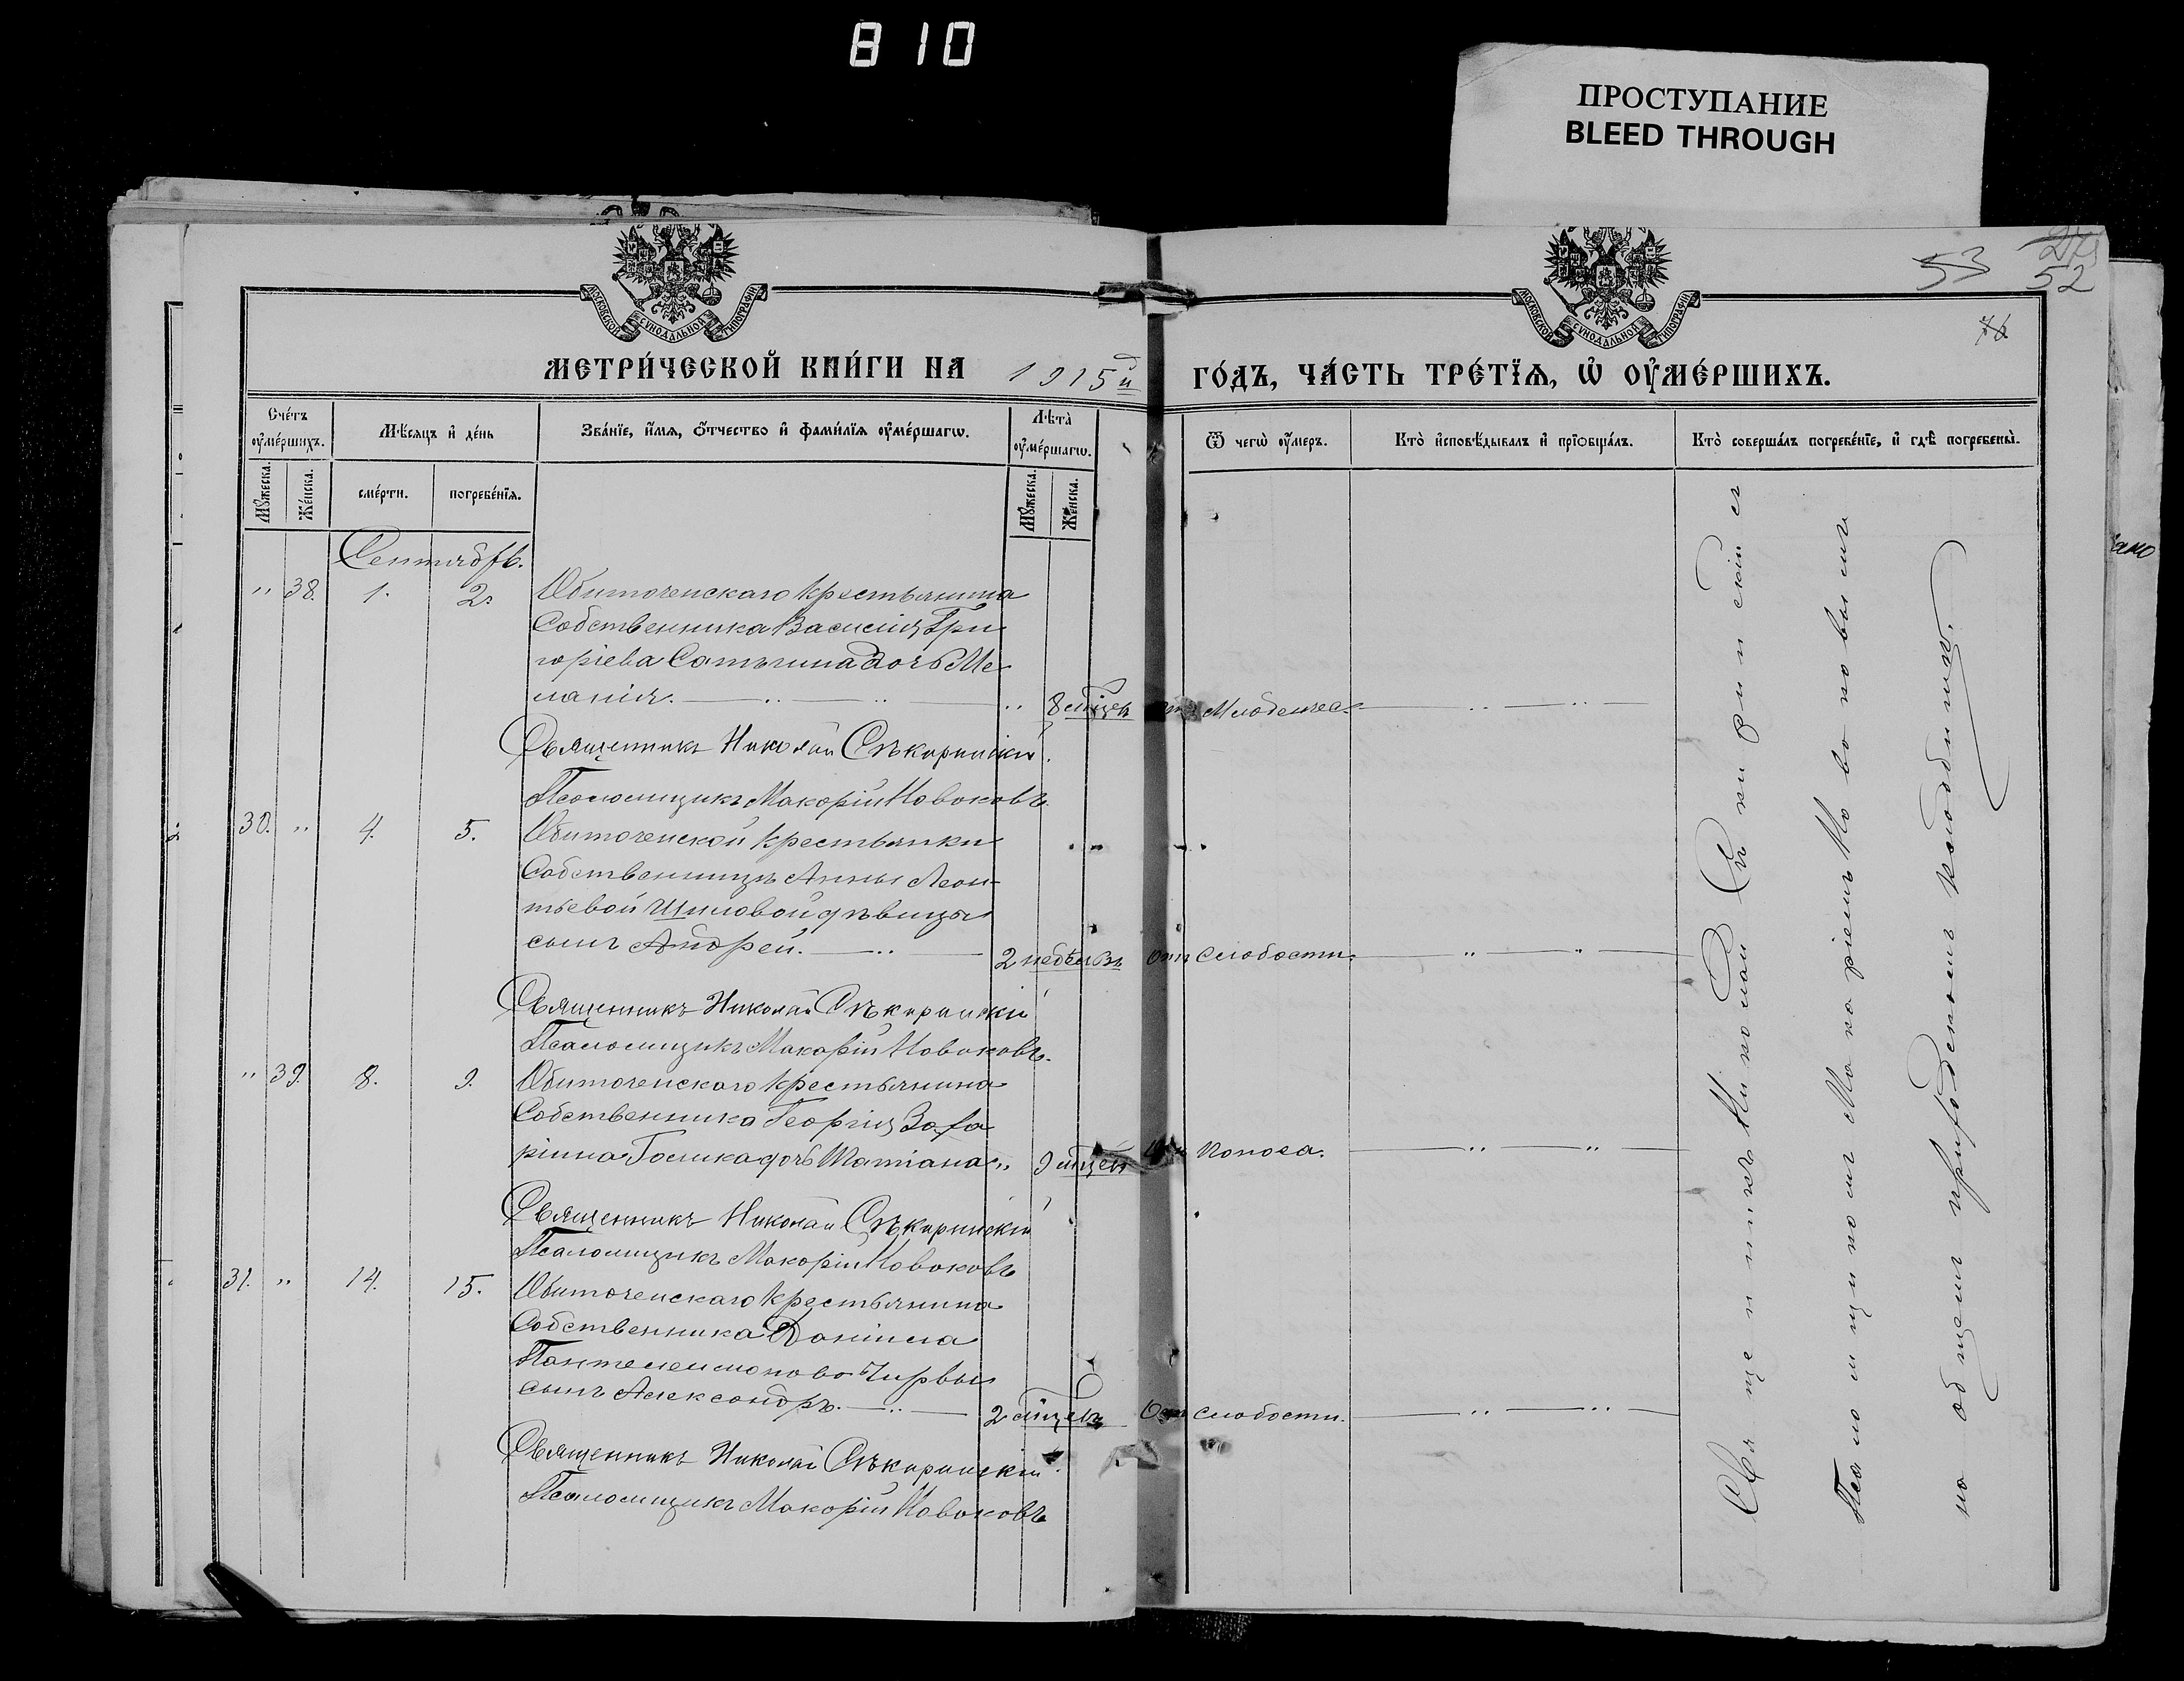 810
ПРОСТУПАНИЕ
BLEED THROUGH
МОСКОВСКОЙ СѴНОДАЛЬНОЙ ТИПОГРАФІИ
МОСКОВСКОЙ СѴНОДАЛЬНОЙ ТИПОГРАФІИ
53
52
76
МЕТРИ́ЧЕСКОЙ КНИ́ГИ НА 1915й ГО́ДЪ, ЧА́СТЬ ТРЕ́ТЇѦ, Ѡ҆ ОУ҆МЕ́РШИХЪ.
Сче́тъ оу҆ме́ршихъ.
Мꙋ́жеска.
Же́нска.
Мѣ́сяцъ и҆ де́нь
сме́рти.
погребе́нїѧ.
Зва́нїе, и҆́мѧ, ѻ҆́тчество и҆ фами́лїѧ оу҆ме́ршагѡ.
Лѣта̀ оу҆ме́ршагѡ.
Мꙋ́жеска.
Же́нска.
Ѿ чегѡ̀ оу҆́меръ.
Кто̀ и҆сповѣ́дывалъ и҆ прїѻбща́лъ.
Кто̀ соверша́лъ погребе́нїе, и҆ гдѣ̀ погребены̀.
Сентябрь.
" 38. 1. 2. Обиточенскаго крестьянина
Собственника Василія Гри
горіева Сотычина дочь Ме
ланія. " 8 мѣсяцевъ отъ Младенчес.
Священникъ Николай Сѣкиринскій.
Псаломщикъ Макарій Новаковъ.
30. " 4. 5. Обиточенской крестьянки
Собственницы Анны Леон-
тьевой Шиловой дѣвицы
сынъ Андрей. 2 недѣль Отъ слабости.
Священникъ Николай Сѣкиринскій
Псаломщикъ Макарій Новаковъ.
" 39. 8. 9. Обиточенскаго крестьянина
Собственника Георгія Заха
ріина дочь Татіана " 9 мѣсяцевъ Отъ поноса.
Священникъ Николай Сѣкиринскій
Псаломщикъ Макарій Новаковъ
31. " 14. 15. Обиточенскаго крестьянина
Собственника Даніила
Пантелеимонова Чирвы
сынъ Александръ. 2 мѣсяцевъ Отъ слабости.
Священникъ Николай Сѣкиринскій.
Псаломщикъ Макарій Новаковъ
Священникъ Николай Сѣкиринскій съ
Псаломщикомъ Макаріемъ Новаковымъ
на общемъ приходскомъ кладбищѣ.